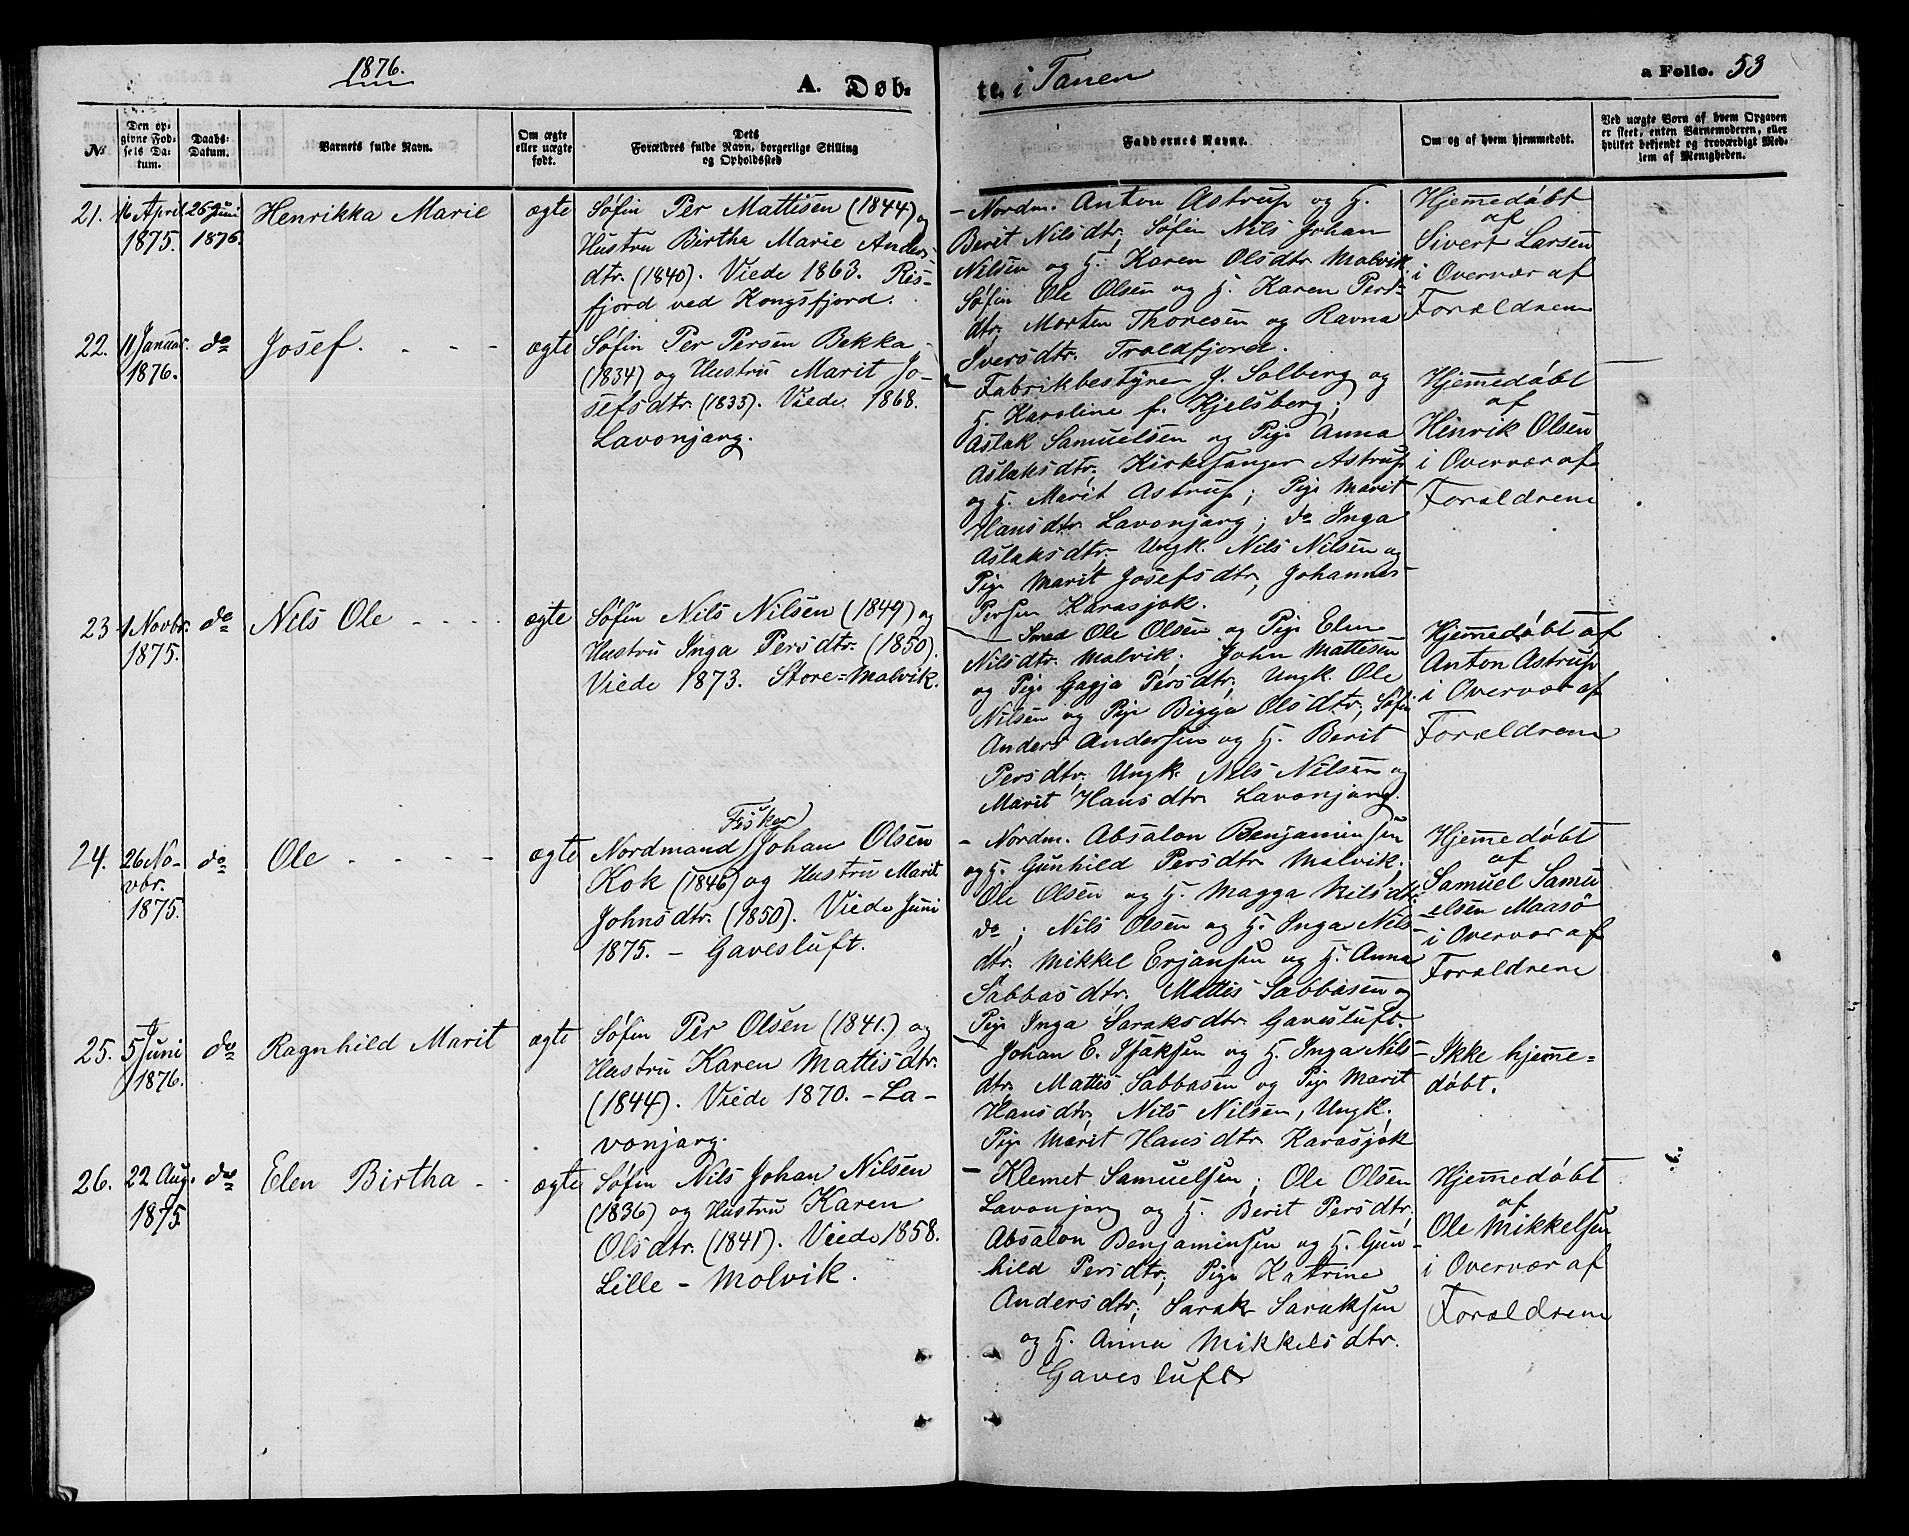 1876.
A. Døb-
te. i Tanen
a Folio. 53
No
Den op-
givne Fød-
sels Da-
tum.
Daabs-
Datum.
Barnets fulde Navn.
Om ægte
eller uægte
født.
Dets
Forældres fulde Navn, borgerlige Stilling
og Opholdssted
Faddernes Navne.
Om og af hvem hjemmedøbt.
Ved uægte Børn af hvem Opgaven
er skeet, enten Barnemoderen, eller
hvilket bekjendt og troværdigt Med-
lem af Menigheden.
21.
16 April
1875.
26 Juni
1876.
Henrikka Marie
ægte
Søfin Per Mattisen (1844) og
Hustru Birtha Marie Anders-
dtr. (1840). Viede 1863. Ris-
fjord ved Kongsfjord.
- Nordm. Anton Astrup og H.
Berit Nilsdtr., Søfin Nils Johan
Nilsen og H. Karen Olsdtr. Malvik.
Søfin Ole Olsen og H. Karen Pers-
dtr. Morten Thoresen og Ravna
Iversdtr. Troldfjord.
Hjemedøbt
af
Sivert Larsen
i Overvær af
Forældrene
22.
11 Januar.
1876.
do
Josef. - - -
ægte
Søfin Per Persen Bekka
(1834) og Hustru Marit Jo-
sefsdtr. (1833). Viede 1868.
Lavonjarg.
- Fabrikbestyrer J. Solberg og
H. Karoline f. Kjelsberg;
Aslak Samuelsen og Pige Anna
Aslaksdtr; Kirkesanger Astrup
og H. Marit Astrup; Pige Marit
Hansdtr. Lavonjarg; do Inga
Aslaksdtr; Ungk. Nils Nilsen og
Pige Marit Josefsdtr, Johannes
Persen Karasjok.
Hjemedøbt
af
Henrik Olsen
i Overvær af
Forældrene
23
1 Novbr.
1875.
do
Nils Ole - - - -
ægte
Søfin Nils Nilsen (1849) og
Hustru Inga Persdtr. (1850).
Viede 1873. Store=Malvik.
- Smed Ole Olsen og Pige Elen
Nilsdtr. Malvik; John Mattesen
og Pige Gagja Persdtr, Ungk. Ole
Nilsen og Pige Bigga Olsdtr, Søfin
Anders Andersen og H. Berit
Persdtr. Ungk. Nils Nilsen og
Marit Hansdtr Lavonjarg.
Hjemedøbt af
Anton Astrup
i Overvær af
Forældrene
24.
26 No-
vbr.
1875.
do
Ole - - - -
ægte
Fisker
Nordmand Johan Olsen
Kok (1846) og Hustru Marit
Johnsdtr. (1850). Viede Juni
1875. - Gavesluft.
- Nordm. Absalon Benjaminsen
og H. Gunhild Persdtr Malvik.
Ole Olsen og H. Magga Nilsdtr.
do; Nils Olsen og H. Inga Nils-
dtr. Mikkel Erjansen og H. Anna
Sabbasdtr. Mattis Sabbasen og
Pige Inga Saraksdtr Gavesluft.
Hjemedøbt
af
Samuel Samu
elsen Maasø
i Overvær af
Forældrene
25.
5 Juni
1876.
do
Ragnhild Marit
ægte
Søfin Per Olsen (1841.) og
Hustru Karen Mattisdtr.
(1844). Viede 1870. - La-
vonjarg.
Johan E. Isaksen og H. Inga Nils-
dtr, Mattis Sabbasen og Pige Marit
Hansdtr, Nils Nilsen, Ungk.
Pige Marit Hansdtr Karasjok
Ikke hjeme=
døbt.
26.
22 Aug.
1875.
do
Elen Birtha - -
ægte
Søfin Nils Johan Nilsen
(1836) og Hustru Karen
Olsdtr. (1841). Viede 1858.
Lille - Molvik.
- Klemet Samuelsen; Ole Olsen
Lavonjarg og H. Berit Persdtr,
Absalon Benjaminsen og H. Gun-
hild Persdtr; Pige Katrine
Andersdtr; Sarak Saraksen
og H. Anna Mikkelsdtr.
Gavesluft
Hjemedøbt
af
Ole Mikkelsen
i Overvær af
Forældrene